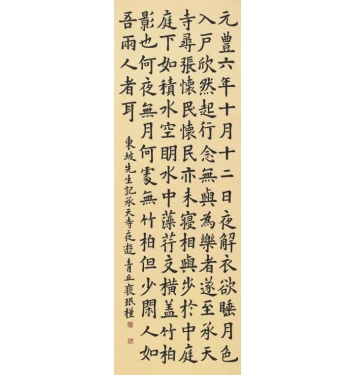 元豐六年十月十二日夜解衣欲睡月色
入戶欣然起行念無與為樂者遂至承天
寺尋張懷民懷民亦未寢相與步於中庭
庭下如積水空明水中藻荇交橫蓋竹柏
影也何夜無月何處無竹柏但少閑人如
吾兩人者耳
東坡先生記承天寺夜遊 青丘裵珉槿